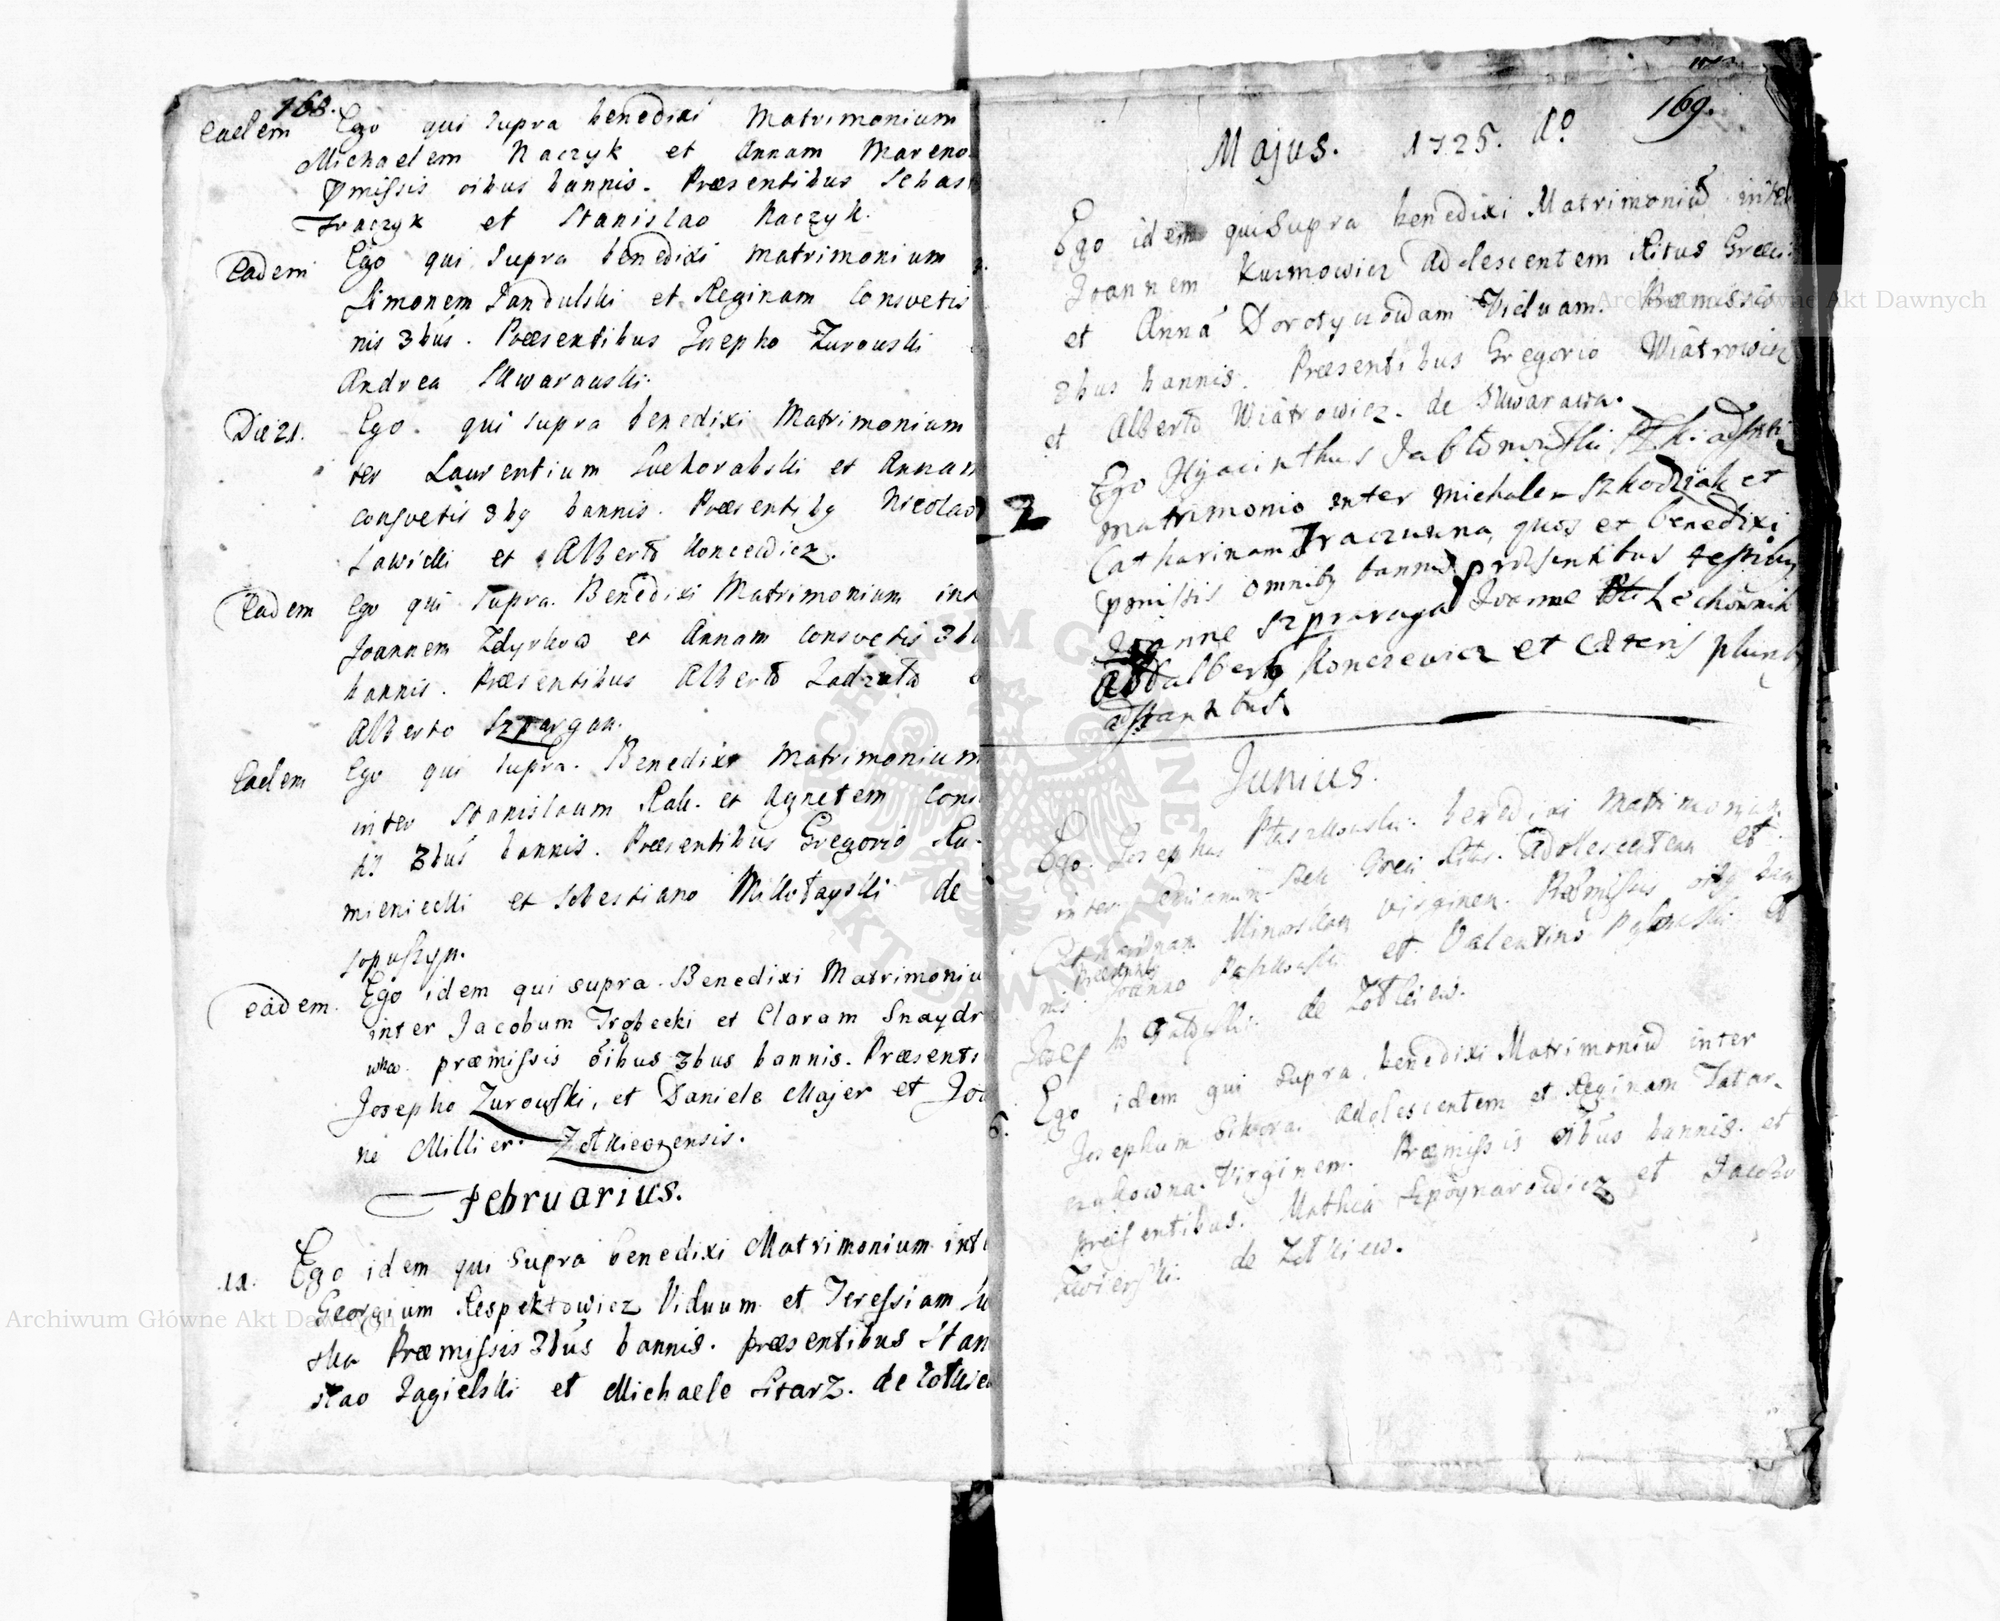 168.
Eadem Ego qui supra benedixi Matrimonium
Michaelem Naczyk et Annam Mareno
Pmissis oibus bannis. Præsentibus Sebast
Traczyk et Stanislao Naczyk.
Eadem Ego qui supra benedixi matrimonium
Simonem Jandulski et Reginam Consvetis
nis 3bus. Præsentibus Josepho Zurowski
Andrea Skwarawski.
Die 21. Ego qui supra benedixi Matrimonium
ter Laurentium Suchorabski et Annam
consvetis 3bq bannis. Præsentibq Nicolao
Sawicki et Alberto Koncewicz.
Eadem Ego qui supra. Benedixi Matrimonium int
Joannem Zdyrkow et Annam Consvetis 3bu
bannis. Præsentibus Alberto
Alberto Szpargaa.
Eadem Ego qui supra. Benedixi Matrimonium
inter Stanislaum Rak. et Agnetem Cons
3bus bannis. Præsentibus Gregorio Ka-
mieniecki et Sebestiano de
Sopuszyn.
Eadem. Ego idem qui supra. Benedixi Matrimoniu
inter Jacobum Trobecki et Claram Snaydr
wka. præmissis oibus 3bus bannis. Præsenti
Josepho Zurowski, et Daniele Majer et Joa
ne Millier. Zolkieviensis.
Februarius.
11. Ego idem qui supra benedixi Matrimonium int
Georgium Respektowicz Viduum et Teressiam Su
ska Præmissis 3bus bannis. præsentibus Stan
slao Jagielski et Michaele Starz. de Zolkie
169.
Majus. 1725. Ao
Ego idem qui supra benedixi Matrimoniu inter
Joannem Kuzmowicz Adolescentem Ritus Græci
et Anna Dorotyczowdam Viduam. Præmissis
3bus bannis. Præsentibus Gregorio Wiatrowicz
et Alberto Wiatrowicz. de Skwarawa.
Ego Hyacinthus Jablonowski
2 matrimonio inter Michalem Szkodziak et
Catharinam Traczuwna, quos et benedixi
pmissis omnibq bannis præsentibus testibq
Joanne Szpraraga Joanne Lechownik
Adalberto Konczewicz et cæteris pluribq
astantibus.
Junius.
Ego Josephus Ptaszkowski. benedixi Matrimonium
inter Græci Ritus. Adolescentem et
Catharinam Minorskam virginem. Præmissis oibq ban
Præsentibq
nis Joanne Paszkowski et Valentino et
Josepho de Zolkiew.
6. Ego idem qui supra. benedixi Matrimoniu inter
Josephum Sikora. Adolescentem et Reginam Tatar-
czukowna. Virginem. Præmissis oibus bannis. et
præsentibus. Mathia et Jacobo
Zwierski. de Zolkiew.
Archiwum Główne Akt Dawnych
Archiwum Główne Akt Dawnych
ARCHIWUM GŁÓWNE AKT DAWNYCH